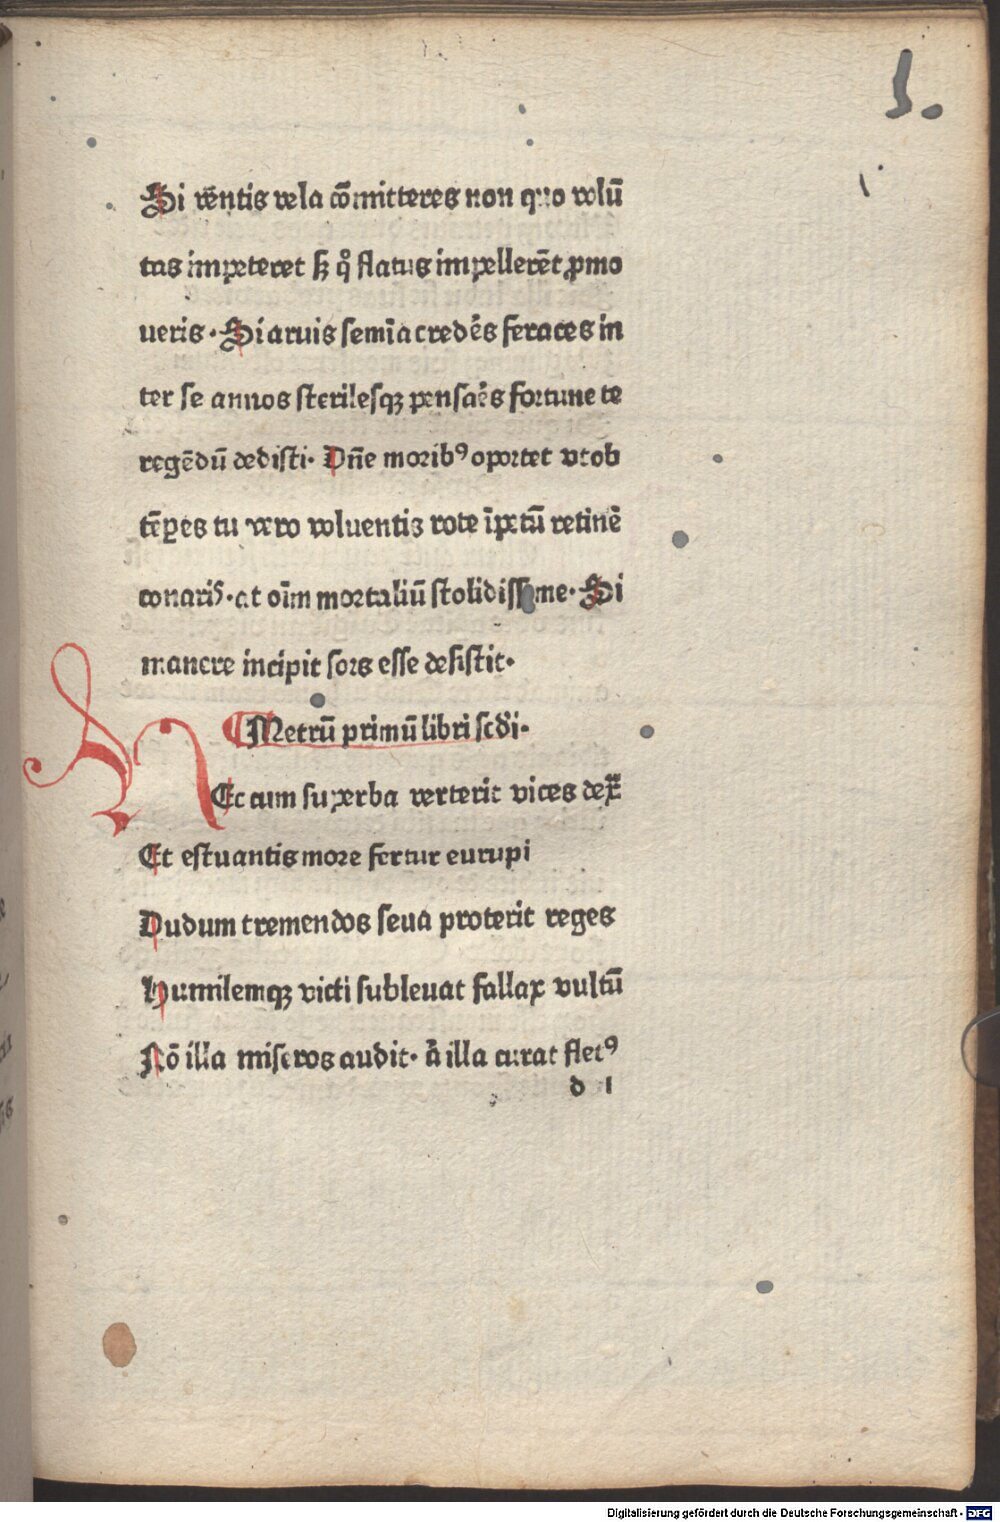 Si vētis vela cōmitteres non quo volū
tas impeteret sꝫ qͦ flatus impellerēt ꝓmo
ueris. Si aruis semīa credēs feraces in
ter se annos sterilesqꝫ pensaēs fortune te
regēdū dedisti. Dn̄e moribꝰ oportet vt ob
tēꝑes tu vero voluentis rote īpetū retinē
conaris. at oīm mortaliū stolidissime. Si
manere incipit sors esse desistit.
¶ Metrū primū libri scd̄i.
NEc cum superba verterit vices dex̄
Et estuantis more fertur eurupi
Dudum tremendos seua proterit reges
Humilemqꝫ victi subleuat fallax vultū
Nō illa miseros audit. ā illa curat fletꝰ
d 1
Digitalisierung gefördert durch die Deutsche Forschungsgemeinschaft - DFG